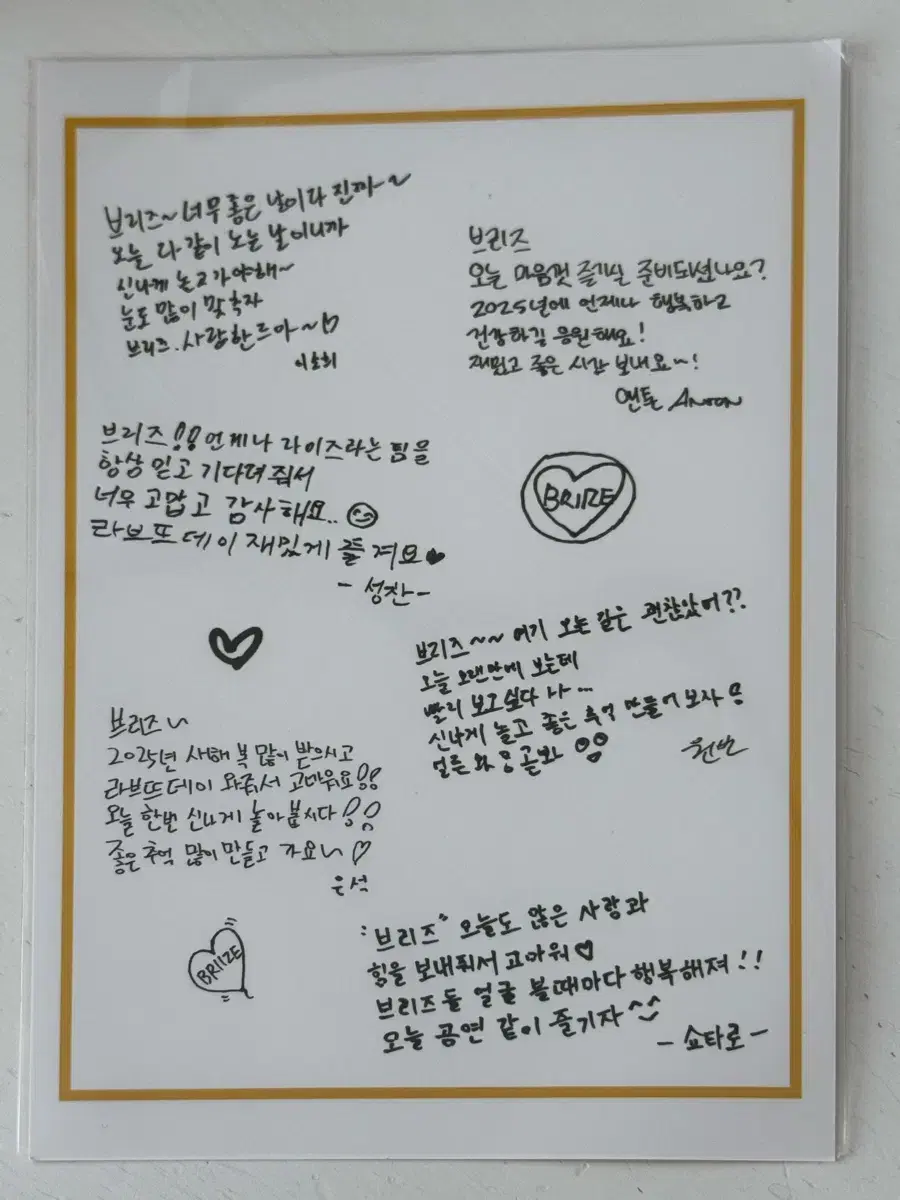 브리즈~ 너무 좋은 날이다 진짜~
오늘 다 같이 노는 날이니까
신나게 놀고 가야해~
눈도 많이 맞추자
브리즈. 사랑한르아~♡
이소희
브리즈
오늘 마음껏 즐기실 준비되셨나요?
2025년에 언제나 행복하고
건강하길 응원해요!
재밌고 좋은 시간 보내요~!
앤톤 ANTON
브리즈!! 언제나 라이즈라는 팀을
항상 믿고 기다려 줘서
너무 고맙고 감사해요..
라브뜨 데이 재밌게 즐겨요♥
- 성찬 -
BRIIZE
브리즈~~ 여기 오는 길은 괜찮았어??
오늘 오랜만에 보는데
빨리 보고싶다 나...
신나게 놀고 좋은 추억 만들어 보자!
얼른 와
원빈
브리즈~
2025년 새해 복 많이 받으시고
라브뜨데이 와줘서 고마워요!!
오늘 한번 신나게 놀아봅시다!!
좋은 추억 많이 만들고 가요~♡
은석
BRIIZE
"브리즈" 오늘도 많은 사랑과
힘을 보내줘서 고마워♡
브리즈들 얼굴 볼때마다 행복해져!!
오늘 공연 같이 즐기자^^
- 쇼타로 -